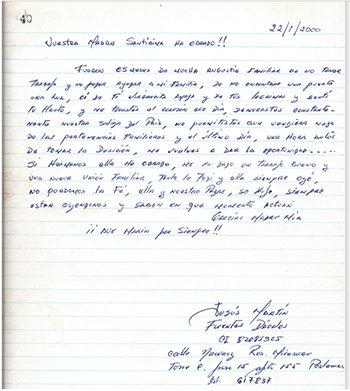 40
22/1/2000
Nuestra Madre Santísima ha obrado!!
Fueron 05 meses de mucha angustia familiar de no tener
trabajo y no poder ayudar a mi familia, de no encontrar un punto
una luz, oí su fe
y de tus lágrimas y sentí
tu llanto, y me tocaste el corazón ese día, demoraste constante-
mente nuestra salida del País, no permitiste que vendiera nada
de las pertenencias familiares y el último día, una hora antes
de tomar la decisión, me vuelves a dar la oportunidad.....
Si hermanos ella ha obrado, me ha dado un trabajo bueno y
una nueva unión familiar, tanto lo pedí y ella siempre oyó,
no perdamos la Fé, ella y nuestro Padre, su Hijo, siempre
están oyéndonos y saben en que momento actuar
Gracias Madre Mía
¡¡ Ave María por Siempre !!
Jesús Martín
Fuentes
CI 82085325
Calle Res. Miramar
Torre C. piso 15 apto 155 Porlamar
617837